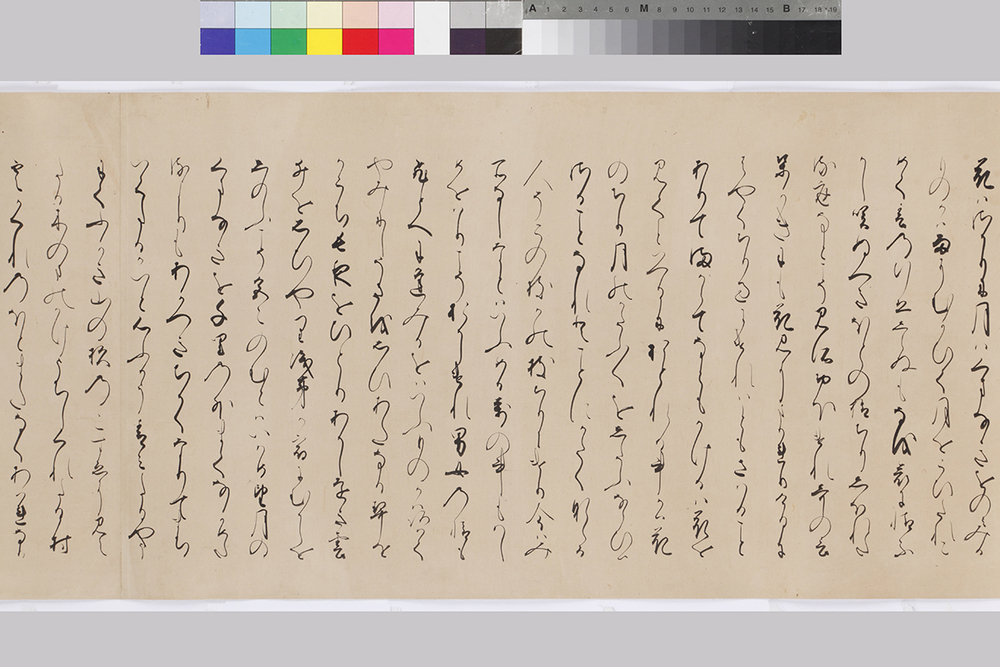 花はさかりに月はくまなきをのみみる
ものかは雨にむかひて月をこひたれこ
めて春の行ゑしらぬも猶哀に情ふ
かし咲ぬへきほとの梢ちりしほれた
る庭なとこそ見所おほけれ哥のこと
葉かきにも花見にまかれりけるに
はやくちり過にけれはともさはること
ありてまからてなともかけるは花を
見てといへるにおとれる事かは花
のちり月のかたふくをしたふならひは
さることなれとことにかたくなる
人そこの枝かの枝ちりにけり今はみ
所なしなとはいふめる万の事もはし
めをはりこそおかしけれ男女の情も
ひとへに逢みるをはいふものかはあはて
やみにしうさを思ひあたなる契を
かこち長夜をひとりあかしとをき雲
井を思ひやり浅茅か宿にむかしを
しのふこそ色このむとはいはめ望月の
くまなきを千里の外まてなかめた
るよりもあかつきちかくなりてまち
いてたるかいと心ふかう青みたるやう
にてふかき山の杉のこすゑに見え
たる木のまの影うちしくれたる村
雲かくれのほとまたなくあはれなり
A 1 2 3 4 5 6 M 8 9 10 11 12 13 14 15 B 17 18 19